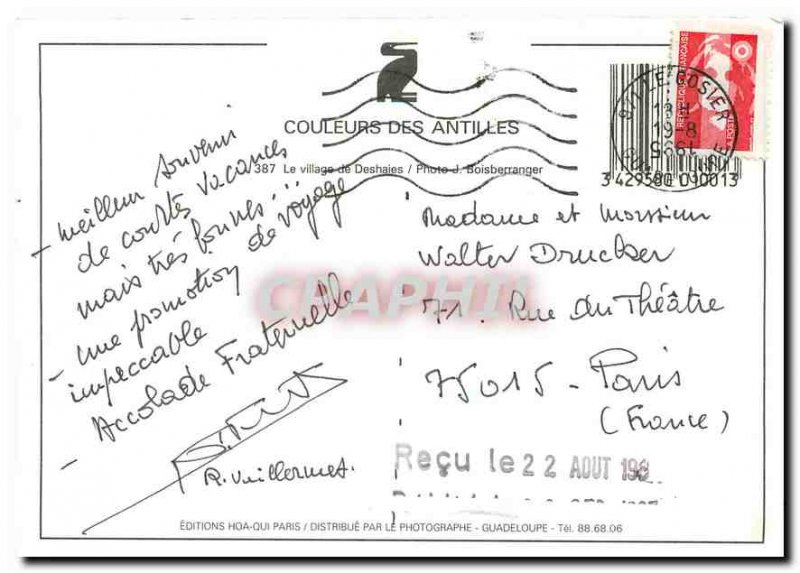 COULEURS DES ANTILLES
387 Le village de Deshaies / Photo J. Boisberranger
RÉPUBLIQUE FRANÇAISE
LE GOSIER
3 429580 090013
- meilleur souvenir
de courtes vacances
mais très bonnes...
- une promotion de voyage
impeccable
- Accolade Fraternelle
R. Vuillermet.
Madame et Monsieur
Walter Drucker
71. Rue du Théâtre
75015 - Paris
(France)
CPAPHIL
Reçu le 22 AOUT 198
ÉDITIONS HOA-QUI PARIS / DISTRIBUÉ PAR LE PHOTOGRAPHE - GUADELOUPE - Tél. 88.68.06